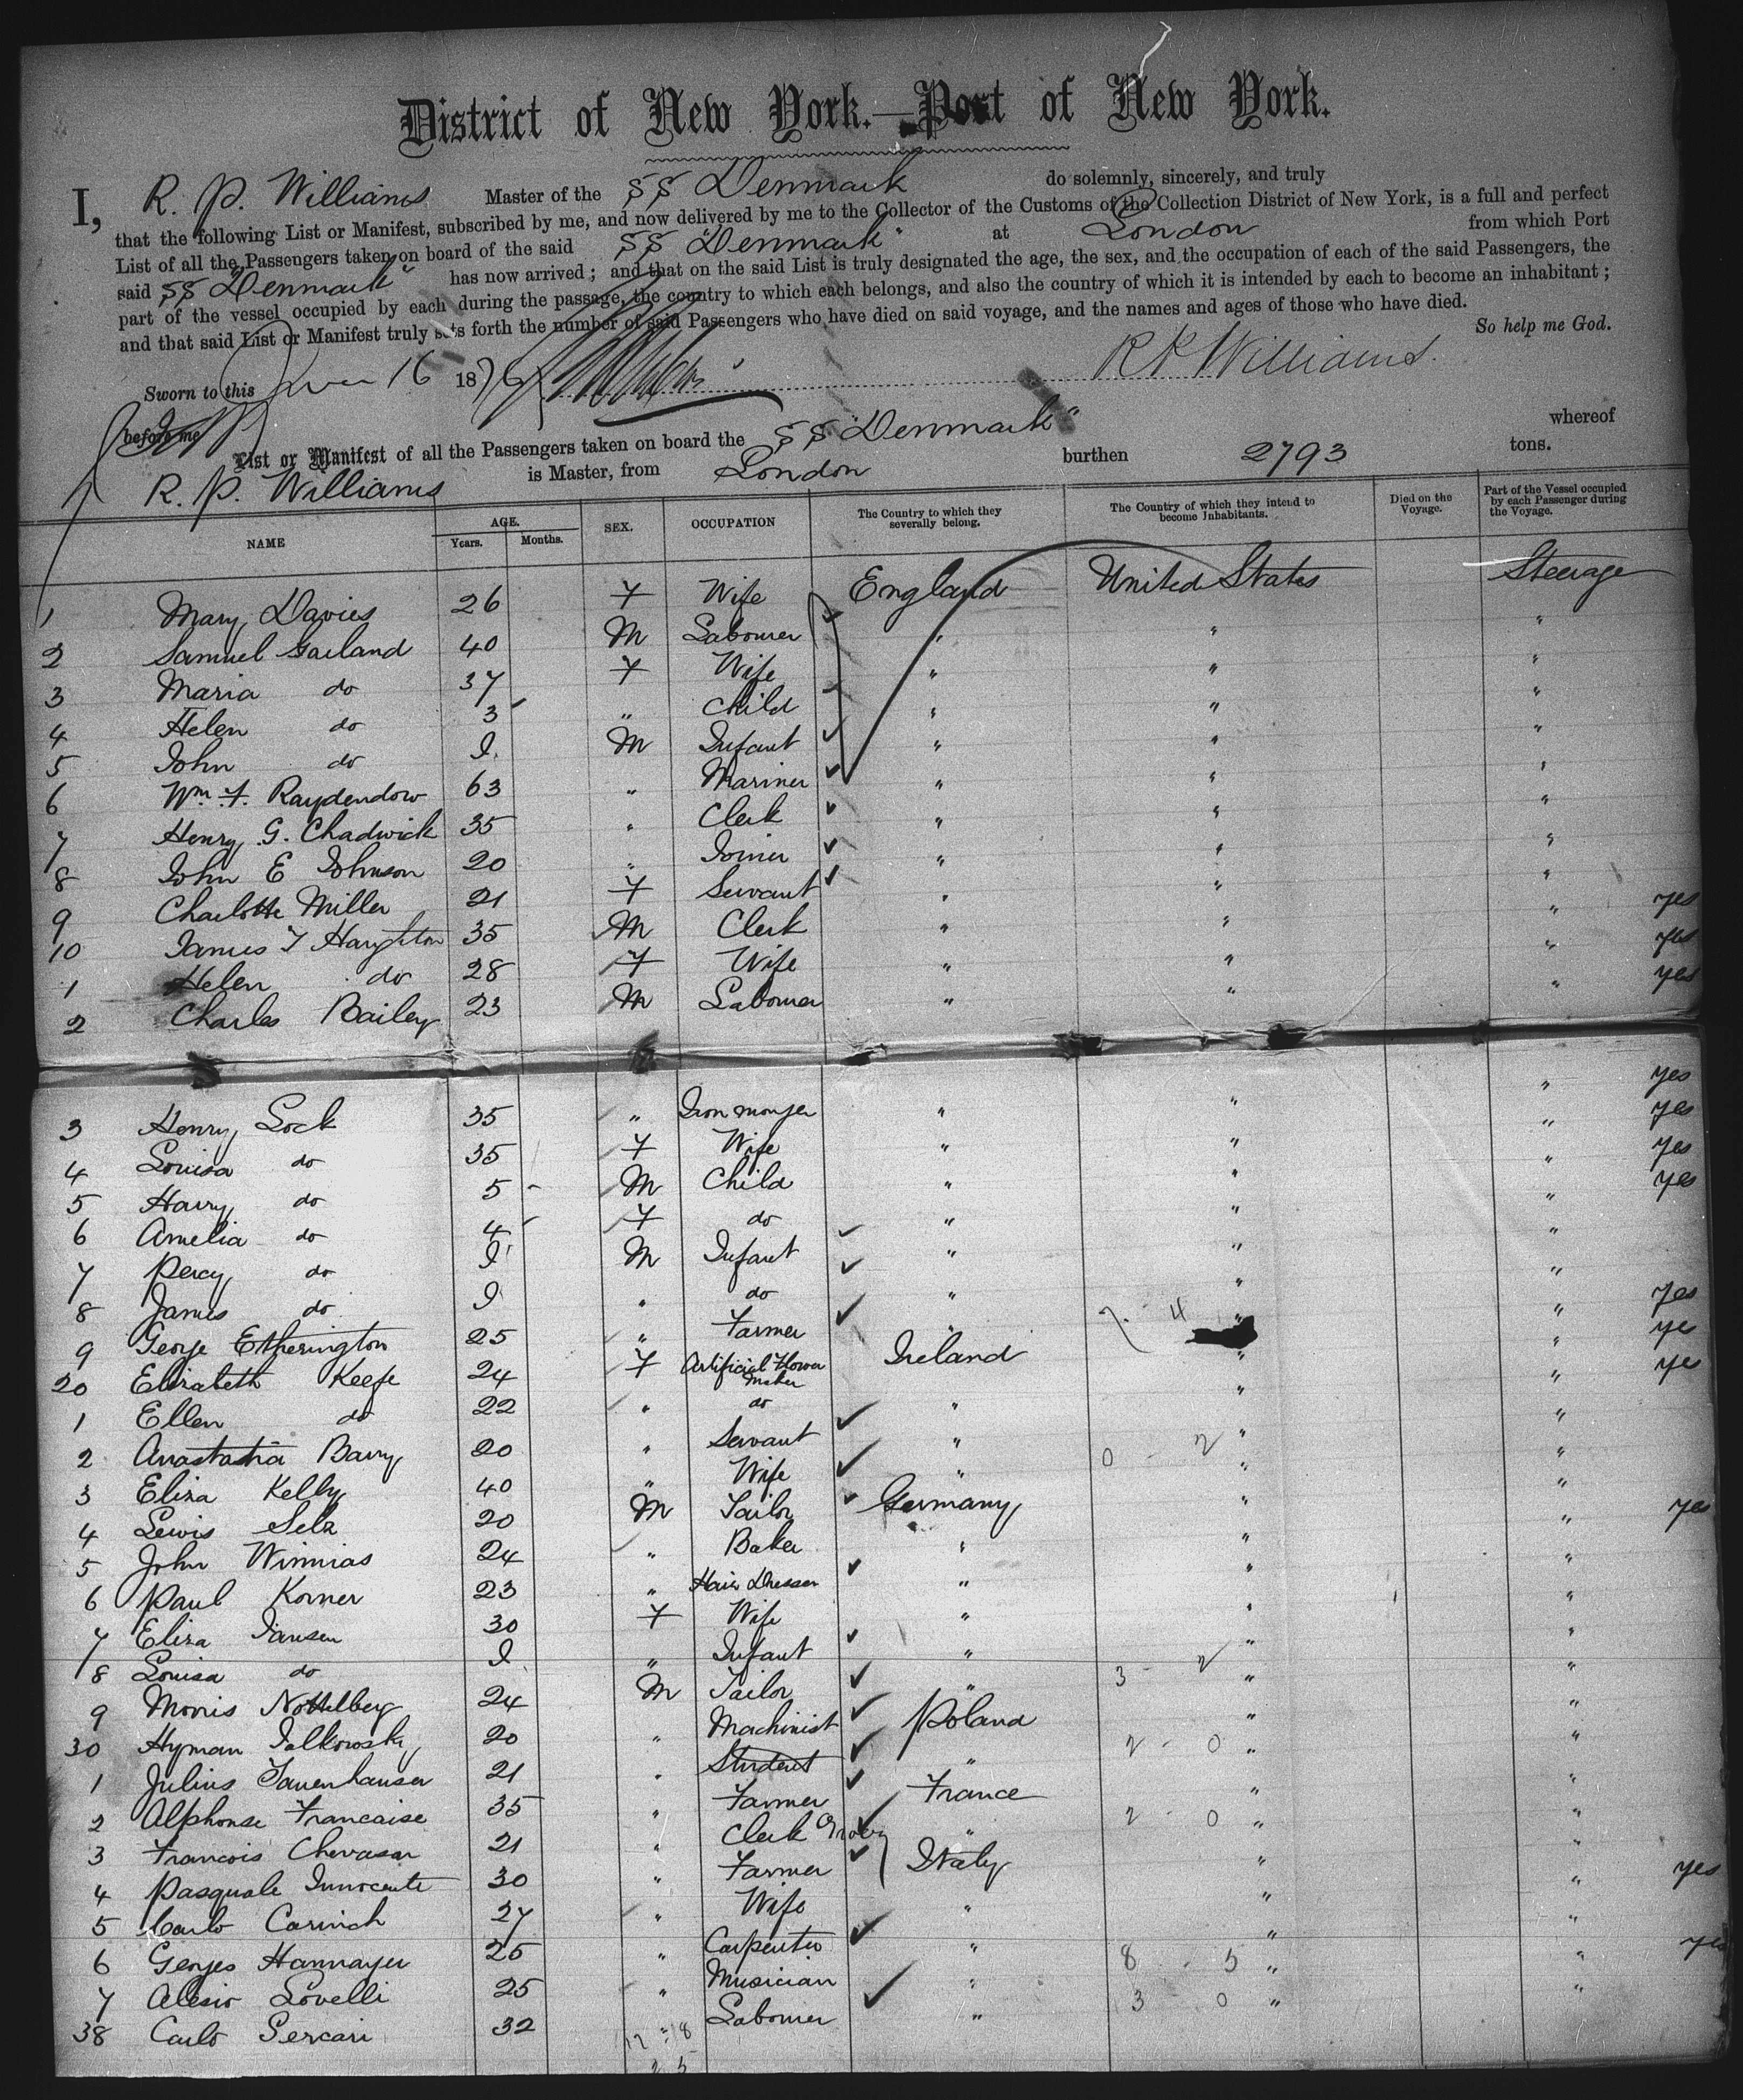 District of New York.—Port of New York.
I, R. P. Williams Master of the SS Denmark do solemnly, sincerely, and truly
that the following List or Manifest, subscribed by me, and now delivered by me to the Collector of the Customs of the Collection District of New York, is a full and perfect
List of all the Passengers taken on board of the said SS "Denmark" at London from which Port
said SS "Denmark" has now arrived; and that on the said List is truly designated the age, the sex, and the occupation of each of the said Passengers, the
part of the vessel occupied by each during the passage, the country to which each belongs, and also the country of which it is intended by each to become an inhabitant;
and that said List or Manifest truly sets forth the number of said Passengers who have died on said voyage, and the names and ages of those who have died.
So help me God.
Sworn to this 16 1876 R P Williams.
before me
List or Manifest of all the Passengers taken on board the SS "Denmark" whereof
R. P. Williams is Master, from London burthen 2793 tons.
NAME AGE. Years. Months. SEX. OCCUPATION The Country to which they severally belong. The Country of which they intend to become Inhabitants. Died on the Voyage. Part of the Vessel occupied by each Passenger during the Voyage.
1 Mary Davies 26 F Wife England United States Steerage
2 Samuel Garland 40 M Labourer " " "
3 Maria do 37 F Wife " " "
4 Helen do 3 " Child " " "
5 John do I. M Infant " " "
6 Wm F. Raydendow 63 " Mariner " " "
7 Henry G. Chadwick 35 " Clerk " " "
8 John E Johnson 20 " Joiner " " "
9 Charlotte Miller 21 F Servant " " "
10 James T Haughton 35 M Clerk " " " yes
1 Helen do 28 F Wife " " " yes
2 Charles Bailey 23 M Labourer " " " yes
3 Henry Lock 35 " Iron monger " " " yes
4 Louisa do 35 F Wife " " " yes
5 Harry do 5 M Child " " " yes
6 Amelia do 4 F do " " " yes
7 Percy do I M Infant " " "
8 James do I " do " " "
9 George Etherington 25 " Farmer " 7 - 4 " " yes
20 Elizabeth Keefe 24 F Artificial Flower maker Ireland " " ye
1 Ellen do 22 " do " " " yes
2 Anastatia Barry 20 " Servant " " "
3 Eliza Kelly 40 " Wife " 0 - 2 " "
4 Lewis Selz 20 M Tailor Germany " "
5 John Winnias 24 " Baker " " " yes
6 Paul Korner 23 " Hair Dresser " " "
7 Eliza Jansen 30 F Wife " " "
8 Louisa do I " Infant " " "
9 Morris Nottelberg 24 M Tailor " 3 - 2 " "
30 Hyman Jalkowsky 20 " Machinist Poland " "
1 Julius Tauenhauser 21 " Student " 2 - 0 " "
2 Alphonse Francaise 35 " Farmer France " "
3 Francois Chevasar 21 " Clerk " 2 - 0 " "
4 Pasquale Innocente 30 " Farmer Italy " "
5 Carlo Carinch 27 " Wife " " " yes
6 Georges Hannayer 25 " Carpenter " " "
7 Alesio Lovelli 25 " Musician " 8 - 5 " " yes
38 Carlo Sercari 32 Labourer " 3 0 " "
17 = 18
2 5